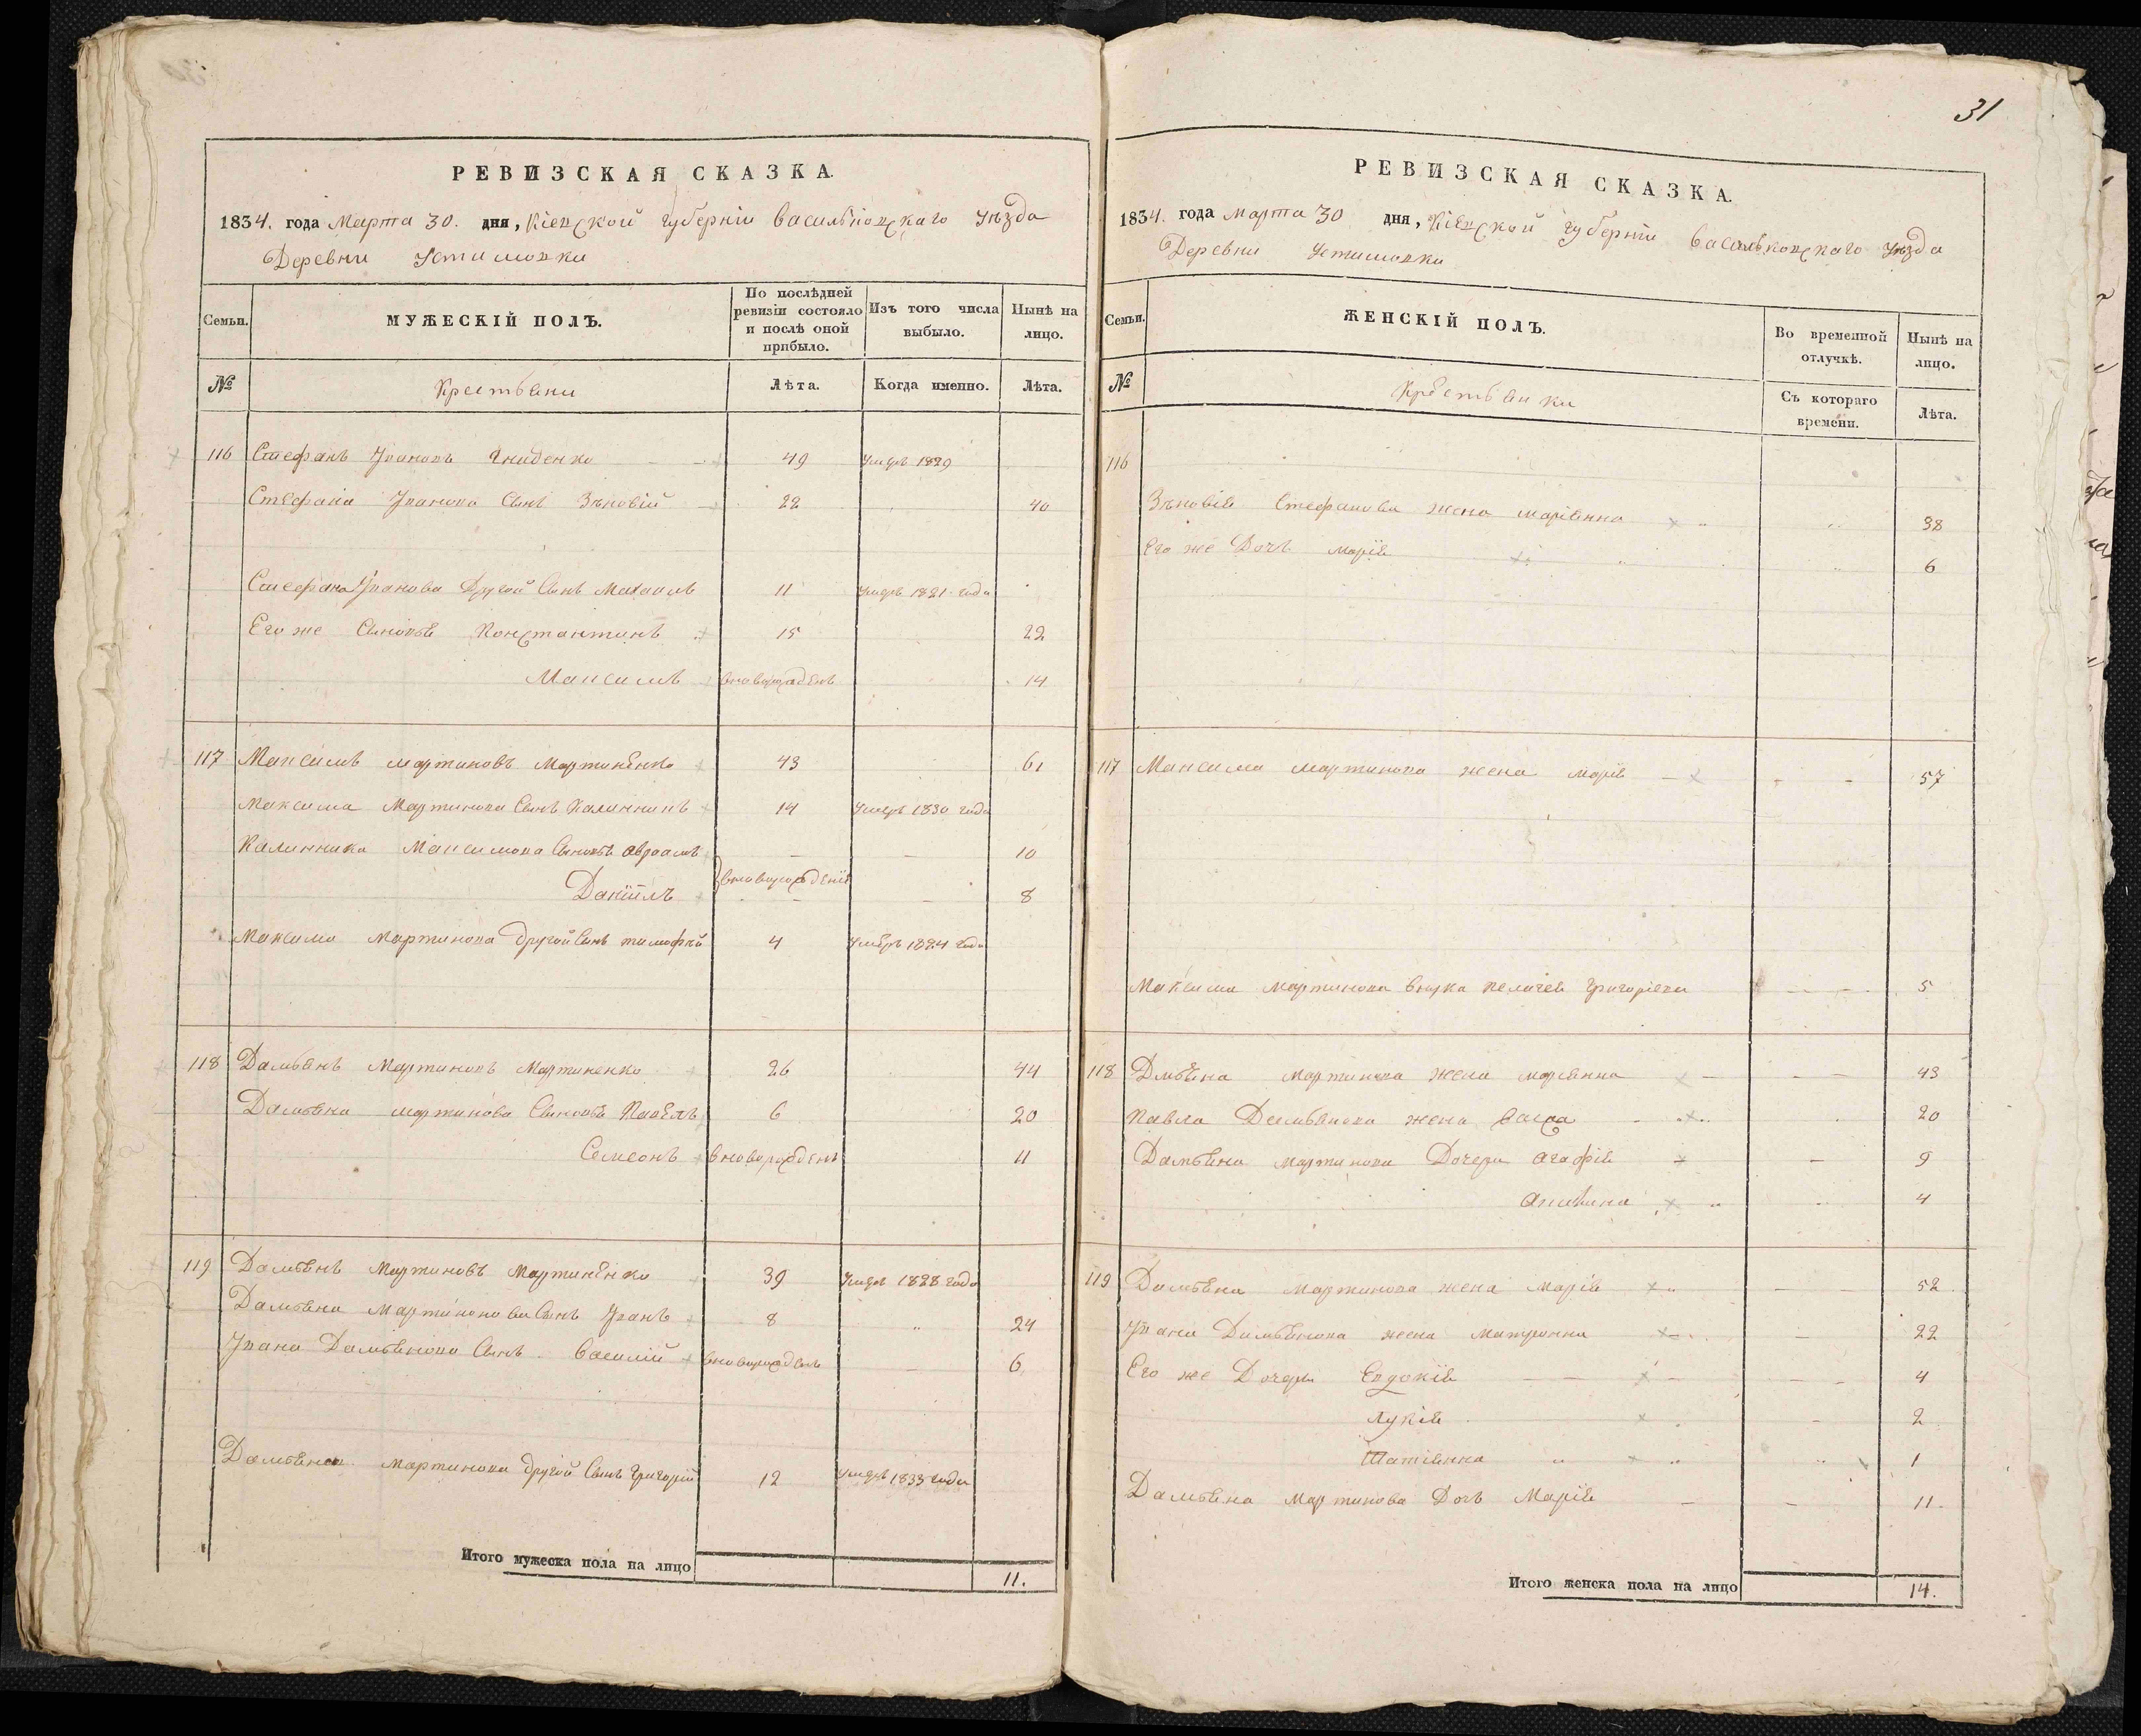 31
РЕВИЗСКАЯ СКАЗКА.
1834. года Марта 30. дня, Кіевской губерніи Васильковскаго уѣзда
Деревни Устимовки
Семьи.
МУЖЕСКІЙ ПОЛЪ.
По послѣдней ревизіи состояло и послѣ оной прибыло.
Изъ того числа выбыло.
Нынѣ на лицо.
№
Крестьяни
Лѣта.
Когда именно.
Лѣта.
116 Стефанъ Ивановъ Гниденко 49 умеръ 1829
Стефана Иванова Сынъ Зѣновій 22 40
Стефана Иванова Другой Сынъ Михаилъ 11 умеръ 1821 года
Его же Сыновья Константинъ 15 22
Максимъ вноворожденъ 14
117 Максимъ Мартиновъ Мартиненко 43 61
Максима Мартинова Сынъ Калинникъ 14 умеръ 1830 года
Калинника Максимова Сыновья Авраамъ 10
Даніилъ вноворожденіи 8
Максима Мартинова другой Сынъ Тимофей 4 умеръ 1824 года
118 Дамьянъ Мартиновъ Мартиненко 26 44
Дамьяна Мартинова Сыновья Павелъ 6 20
Семеонъ вноворожденъ 11
119 Дамьянъ Мартиновъ Мартиненко 39 умеръ 1828 года
Дамьяна Мартинова Сынъ Иванъ 8 24
Ивана Дамьянова Сынъ Василій вноворожденъ 6
Дамьяна Мартинова другой Сынъ Григорій 12 умеръ 1833 года
Итого мужеска пола на лицо 11.
РЕВИЗСКАЯ СКАЗКА.
1834. года Марта 30 дня, Кіевской губерніи Васильковскаго уѣзда
Деревни Устимовки
Семьи.
ЖЕНСКІЙ ПОЛЪ.
Во временной отлучкѣ.
Нынѣ на лицо.
№
Крестьянки
Съ котораго времени.
Лѣта.
116
Зѣновія Стефанова жена Маріянна 38
Его же Дочь Марія 6
117 Максима Мартинова жена Марія 57
Максима Мартинова внука Пелагея Григоріева 5
118 Дмьяна Мартинова жена Маріянна 43
Павла Дамьянова жена 20
Дамьяна Мартинова Дочери Агафія 9
4
119 Дамьяна Мартинова жена Марія 52
Ивана Дамьянова жена Матрунна 22
Его же Дочери Евдокія 4
Лукія 2
Татіянна 1
Дамьяна Мартинова Дочь Марія 11.
Итого женска пола на лицо 14.